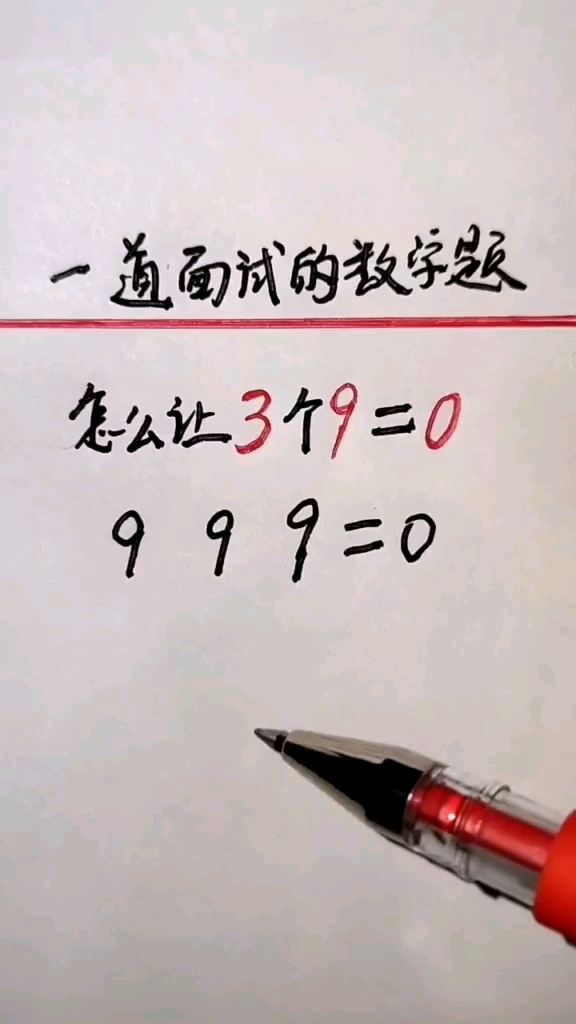 一道面试的数字题
怎么让3个9=0
9 9 9=0